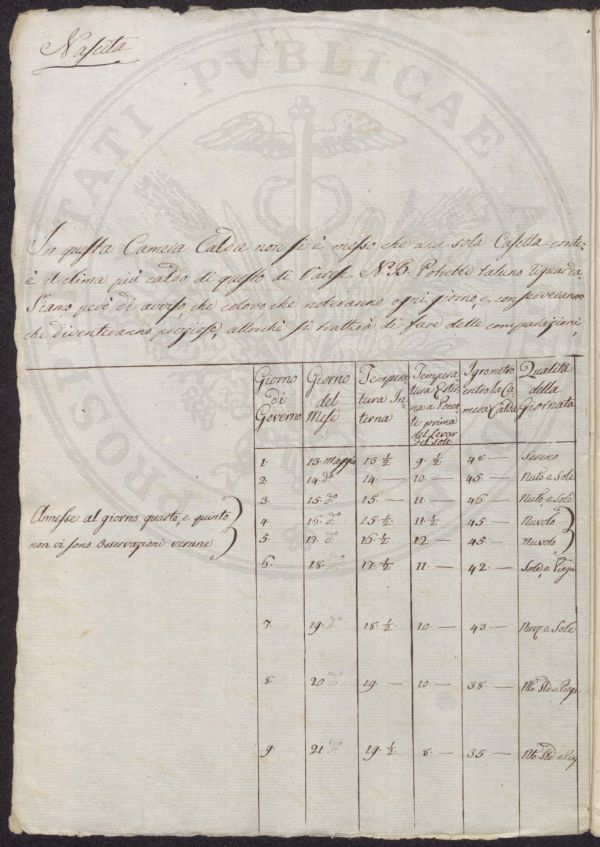 Nascita
In questa Camera Calda non si è messo che una sola Casetta
è il clima più caldo di questo di Varese. N.B. Potrebbe taluno
Siano però di avviso che coloro che noteranno ogni giorno, e conserveranno
che diventeranno preziose, allorchè si tratterà di fare delle comparazioni,
Giorno di Governo | Giorno del Mese | Temperatura Interna | Temperatura Esterna a Ponente prima del Levar del sole | Igrometro entro la Camera Calda | Qualità della Giornata
1. | 13. Maggio | 13 ½ | 9. ½ | 48 — | Sereno
2. | 14. do | 14 — | 10 — | 45 — | Nulo e Sole
3. | 15. do | 15 — | 11 — | 46 — | Nulo, e Sole
Annesse al giorno quarto, e quinto
non vi sono Osservazioni verune
4. | 16. do | 15 ½ | 11 ½ | 45 — | Nuvolo
5. | 17. do | 16 ½ | 12 — | 45 — | Nuvolo
6. | 18. do | 17 ½ | 11 — | 42 — | Sole, e
7. | 19. do | 18 ½ | 10 — | 43 — | e Sole
8. | 20 do | 19 — | 10 — | 38 —
9. | 21. do | 19 ½ | 8 — | 35 —